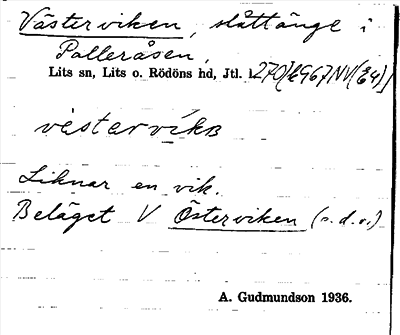 Västerviken, slåttänge i
Palleråsen,
Lits sn, Lits o. Rödöns hd, Jtl.
Liknar en vik.
Beläget V Österviken (s.d.o.)
A. Gudmundson 1936.